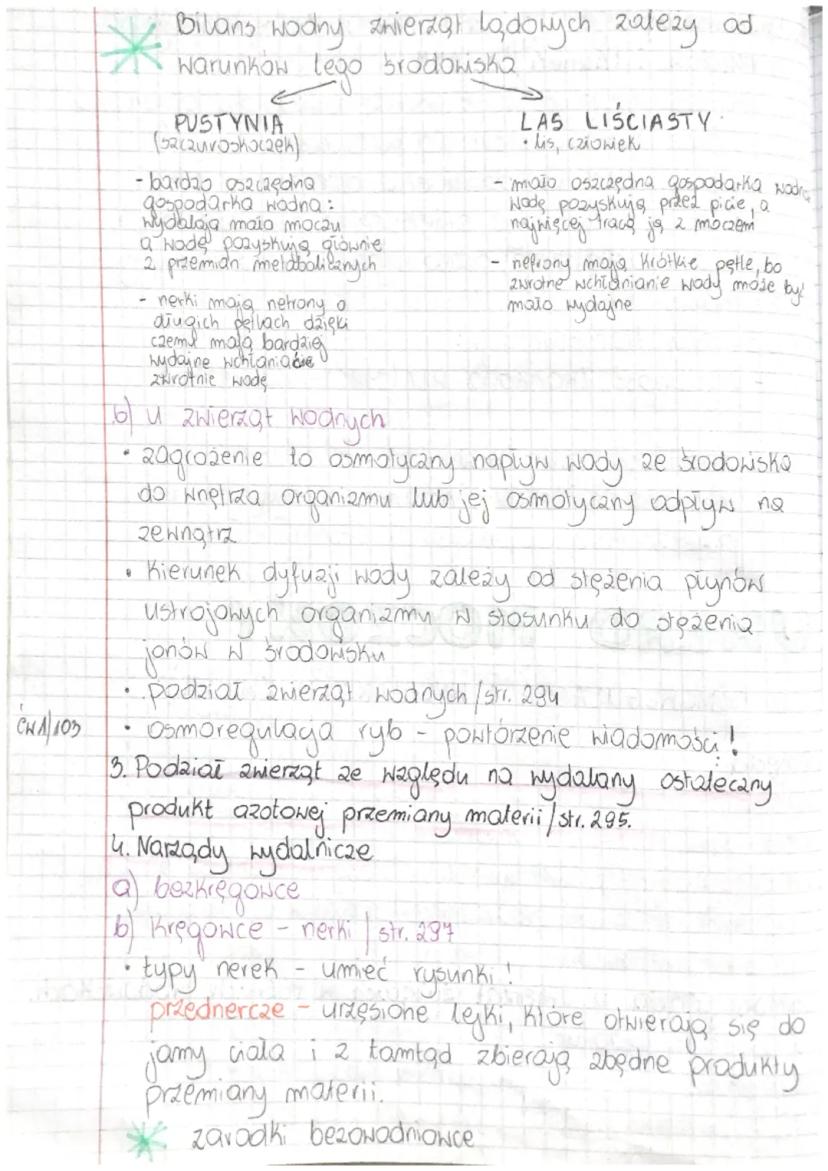 Bilans wodny zwierząt lądowych zależy od
warunków tego środowiska
PUSTYNIA
(szczuroskoczek)
- bardzo oszczędna
gospodarka wodna:
wydalają mało moczu
a wodę pozyskują głównie
z przemian metabolicznych
- nerki mają nefrony o
długich pętlach dzięki
czemu mają bardziej
wydajne wchłaniacie
zwrotnie wodę
LAS LIŚCIASTY
• lis, człowiek
- mało oszczędna gospodarka wodna
wodę pozyskują przez picie, a
najwięcej tracą ją z moczem
- nefrony mają krótkie pętle, bo
zwrotne wchłanianie wody może być
mało wydajne
b) u zwierząt wodnych
• zagrożenie to osmotyczny napływ wody ze środowiska
do wnętrza organizmu lub jej osmotyczny odpływ na
zewnątrz
• kierunek dyfuzji wody zależy od stężenia płynów
ustrojowych organizmu w stosunku do stężenia
jonów w środowisku
• podział zwierząt wodnych / str. 294
ćw 1/103
• osmoregulacja ryb - powtórzenie wiadomości!
3. Podział zwierząt ze względu na wydalany ostateczny
produkt azotowej przemiany materii / str. 295.
4. Narządy wydalnicze
a) bezkręgowce
b) kręgowce - nerki / str. 297
• typy nerek - umieć rysunki!
przednercze - urzęsione lejki, które otwierają się do
jamy ciała i z tamtąd zbierają zbędne produkty
przemiany materii.
zarodki bezowodniowce